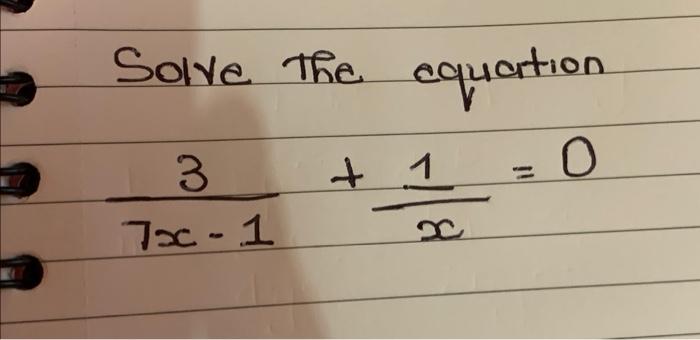 Solve the equation
3/(7x - 1) + 1/x = 0